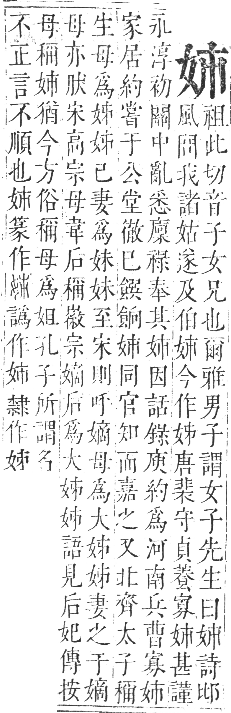 姊
祖此切音子女兄也爾雅男子謂女子先生曰姊詩邶
風問我諸姑遂及伯姊今作姊唐裴守貞養寡姊甚謹
永淳初關中亂悉稟祿奉其姊因話錄庾約爲河南兵曹寡姊
家居約嘗于公堂徹已饌餉姊同官知而嘉之又北齊太子稱
生母爲姊姊已妻爲妹妹至宋則呼嫡母爲大姊姊妻之于嫡
母亦肰宋高宗母韋后稱徽宗嫡后爲大姊姊語見后妃傳按
母稱姊猶今方俗稱母爲姐孔子所謂名
不正言不順也姊篆作𡛷譌作姉隸作姊